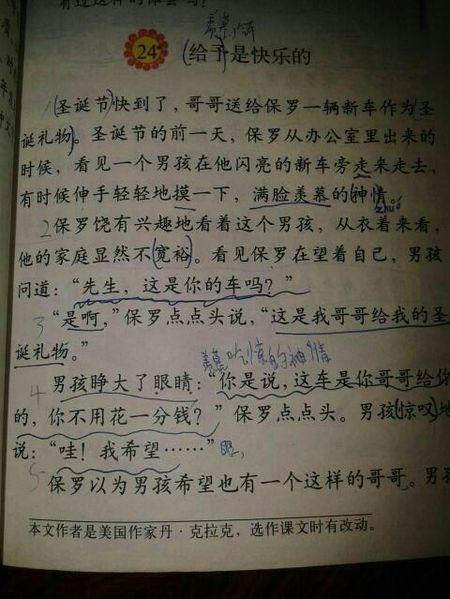 24 给予是快乐的
圣诞节快到了，哥哥送给保罗一辆新车作为圣
诞礼物。圣诞节的前一天，保罗从办公室里出来的
时候，看见一个男孩在他闪亮的新车旁走来走去，
有时候伸手轻轻地摸一下，满脸羡慕的神情。
zhuó
保罗饶有兴趣地看着这个男孩，从衣着来看，
他的家庭显然不宽裕。看见保罗在望着自己，男孩
问道：“先生，这是你的车吗？”
“是啊，”保罗点点头说，“这是我哥哥给我的圣
诞礼物。”
羡慕 吃惊的神情
男孩睁大了眼睛：“你是说，这车是你哥哥给你
的，你不用花一分钱？”保罗点点头。男孩惊叹地
说：“哇！我希望……”
保罗以为男孩希望也有一个这样的哥哥。男孩
本文作者是美国作家丹·克拉克，选作课文时有改动。